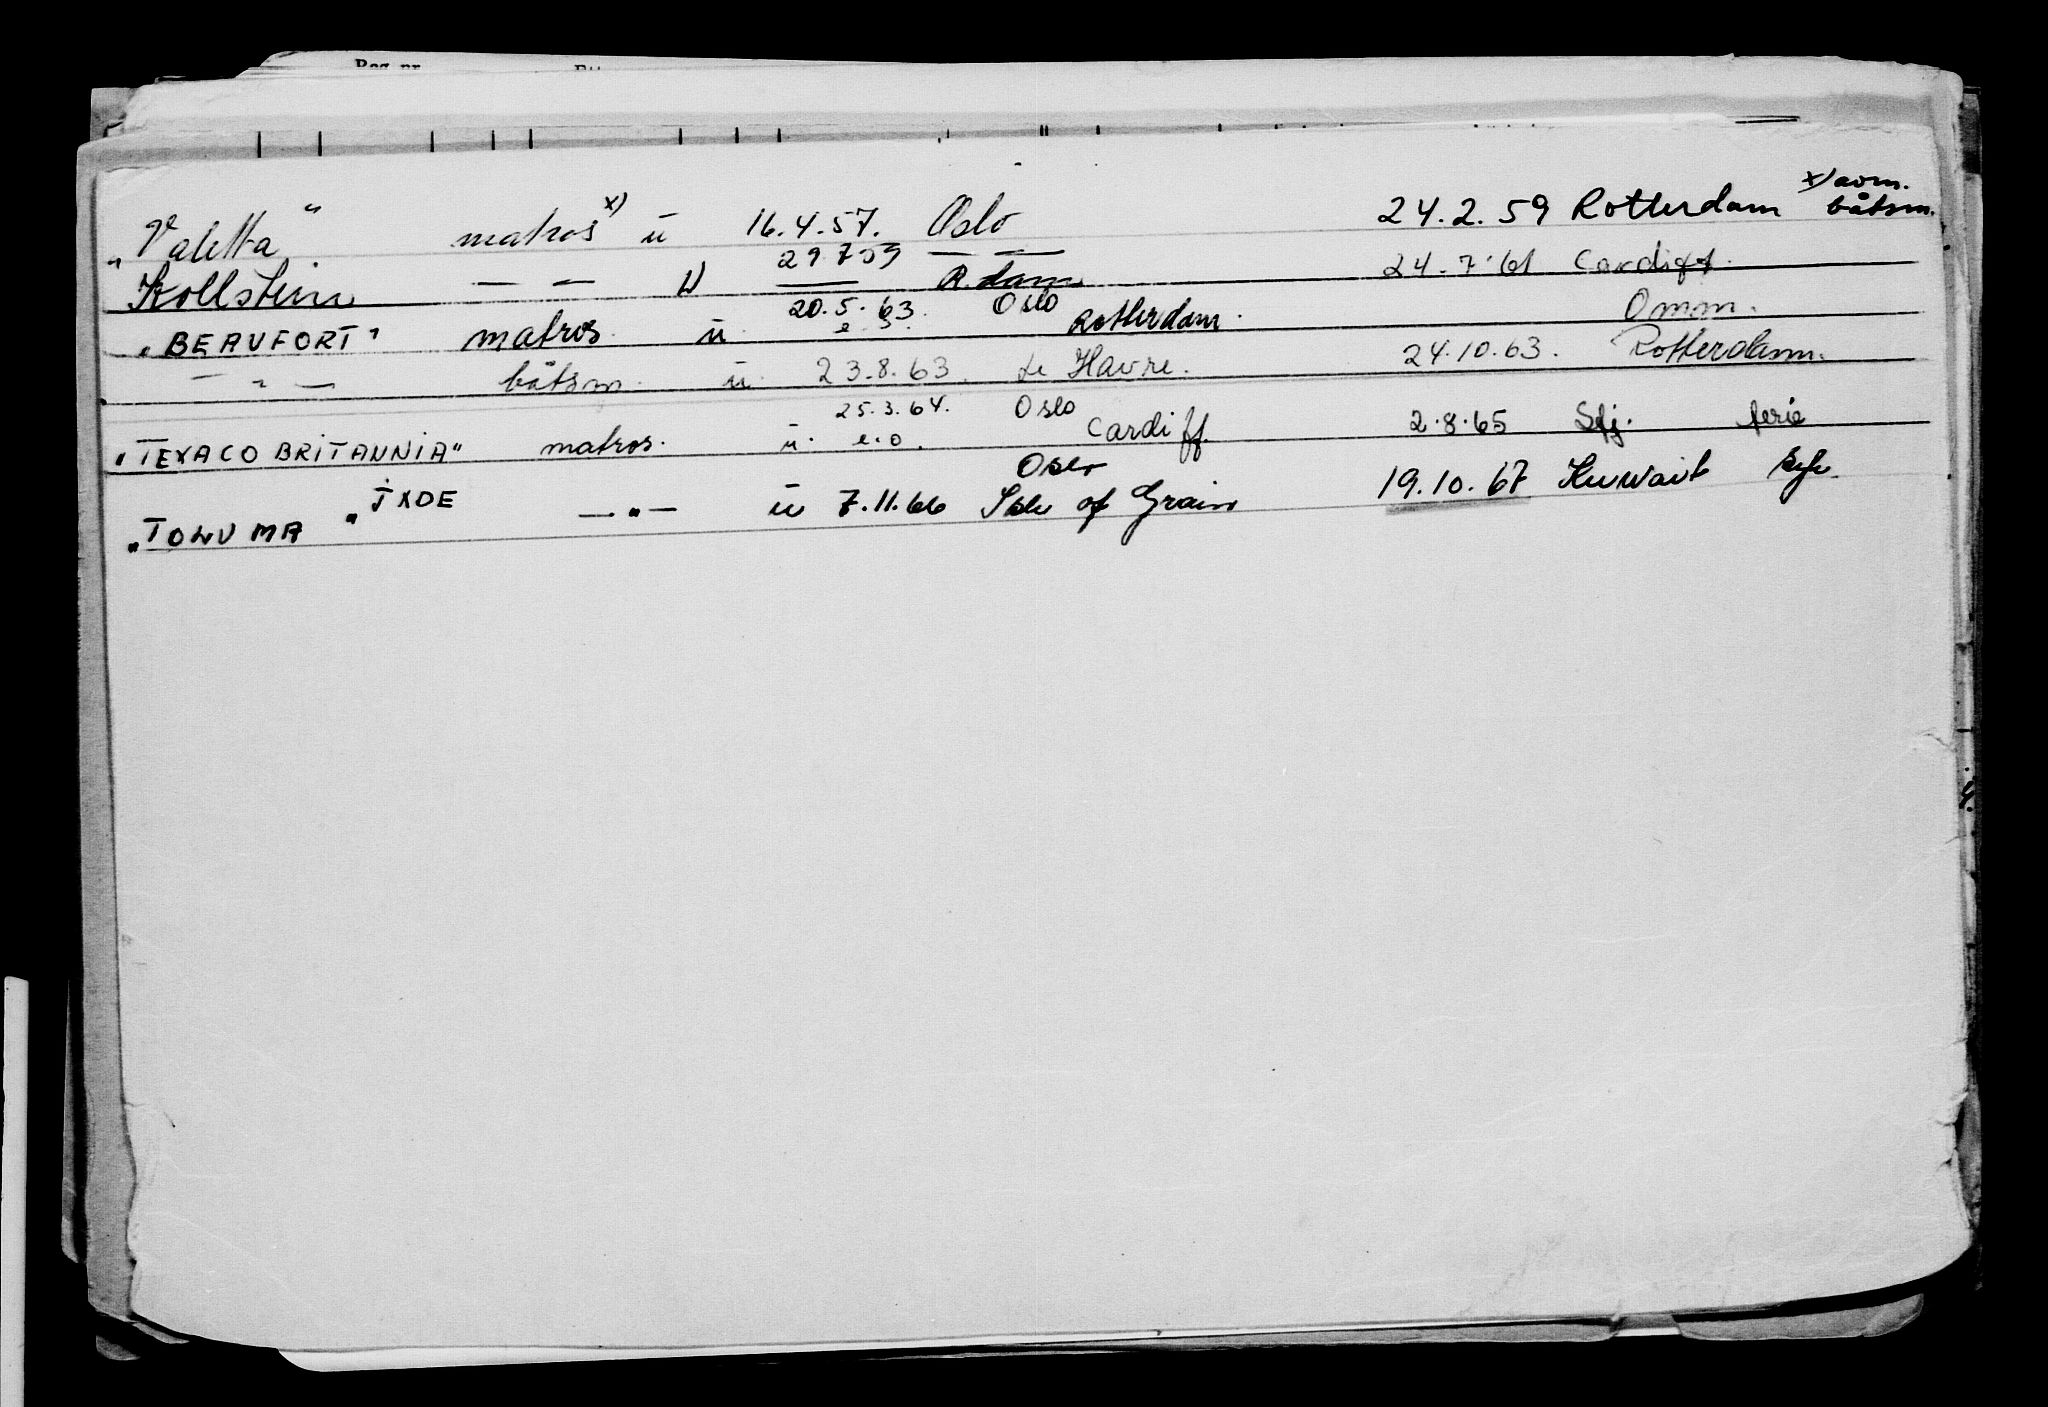 „Valetta" matros x) u 16.4.57. Oslo 24.2.59 Rotterdam x) avm. båtsm.
29 7 59 — —
Kollstein — — u — R.dam 24.7.61 Cardiff.
20.5.63. Oslo Omm.
„BEAUFORT" matros u. Rotterdam.
— " — båtsm. u. 23.8.63. Le Havre. 24.10.63. Rotterdam.
25.3.64. Oslo
„TEXACO BRITANNIA" matros. u. e.o. Cardiff. 2.8.65 Sfj. ferie
Oslo
„TOLUMA" TXDE — " — u 7.11.66 Isle of Grain 19.10.67 Kuwait syk.